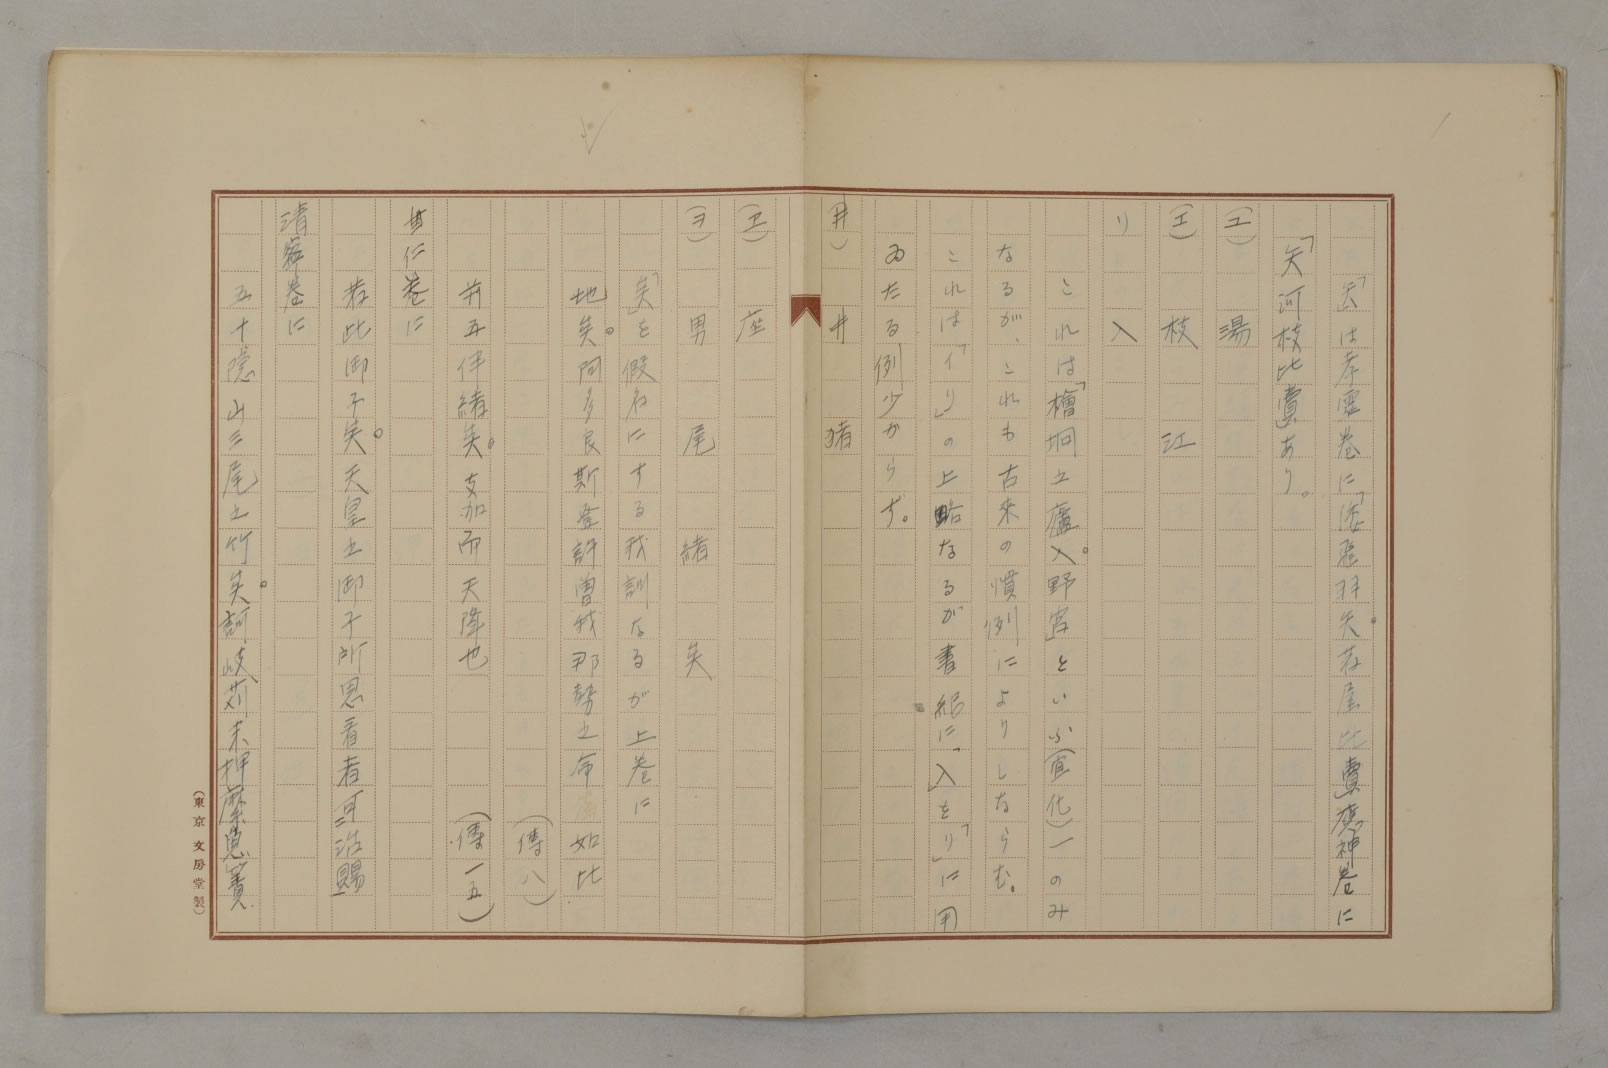 「矢」は孝霊巻に「倭飛羽矢若屋比賣」應神巻に
「矢河枝比賣」あり。
(ユ) 湯
(エ) 枝 江
リ 入
これは「檜坰之廬入野宮」といふ(宣化)一のみ
なるが、これも古来の慣例によりしならむ。
これは「イリ」の上略なるが書紀に「入」を「リ」に用
ゐたる例少からず。
(井) 井 猪
(ヱ) 座
(ヲ) 男 尾 緒 矣
「矣」を假名にする我訓なるが上巻に
地矣。阿多良斯登許曽我那勢之命 如此
(傳八)
并五伴緒矣。支加而天降也 (傳一五)
垂仁巻に
若此御子矣。天皇之御子所思看者可治賜
清寧巻に
五十隱山三尾之竹矣。訶岐苅末押縻魚簀
(東京 文房堂製)